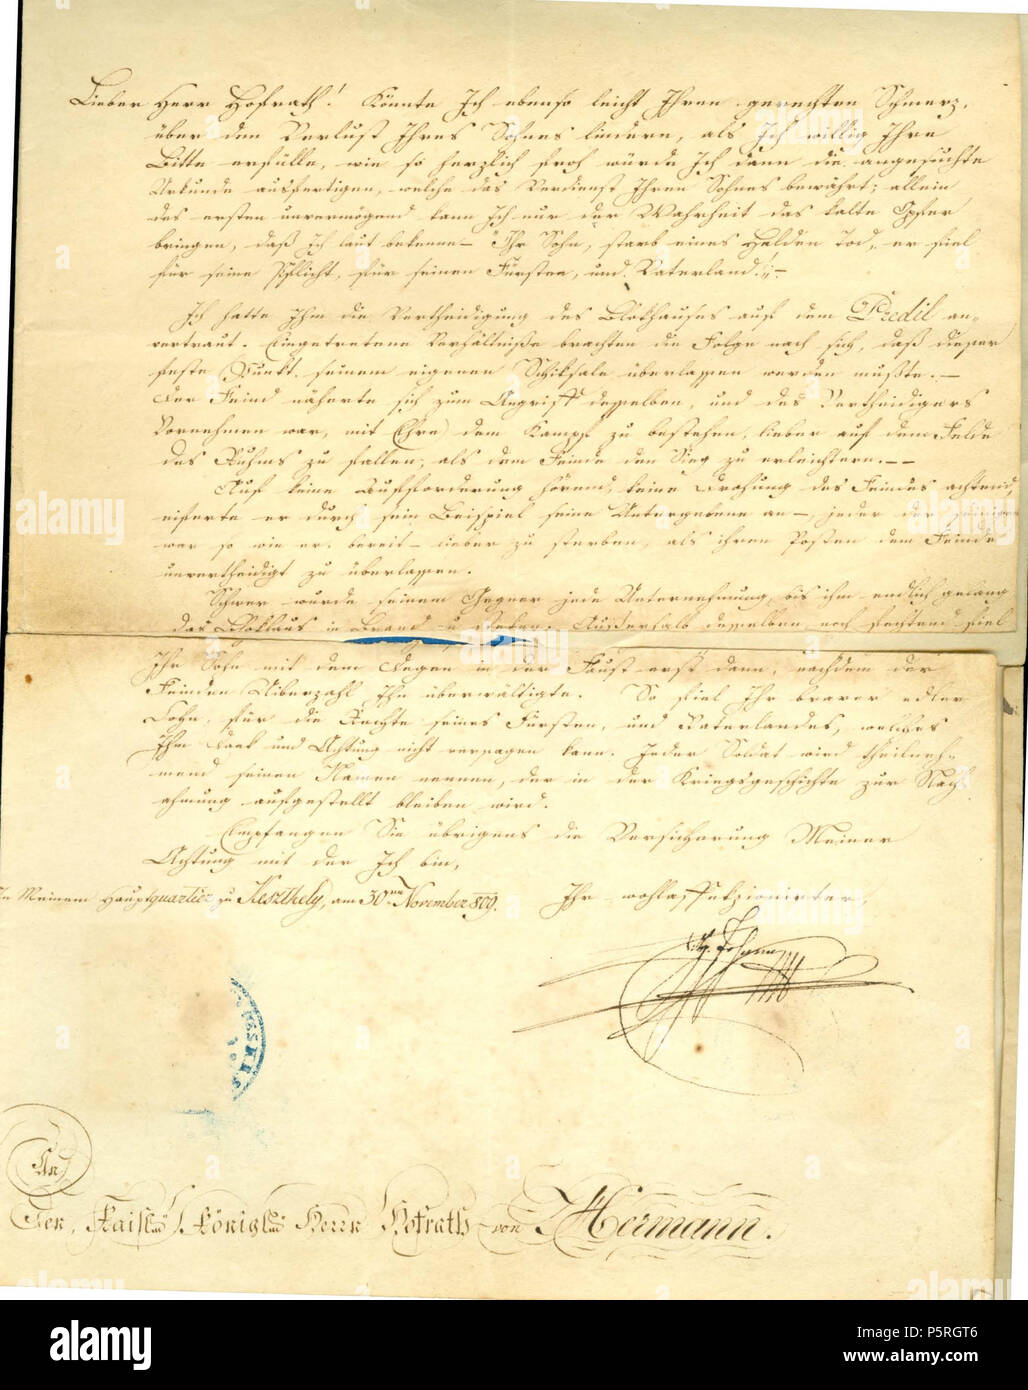 Lieber Herr Hofrath! Könnte Ich ebenso leicht Ihren gerechten Schmerz,
über den Verlust Ihres Sohnes lindern, als Ich willig Ihre
Bitte erfülle, wie so herzlich froh würde Ich dann die angesuchte
Urkunde ausfertigen, welche das Verdienst Ihres Sohnes bewährt; allein
des ersten unvermögend kann Ich nur der Wahrheit das kalte Opfer
bringen, daß ich laut bekenne – Ihr Sohn, starb eines Helden Tod, er fiel
für seine Pflicht, für seinen Fürsten, und Vaterland! –
Ich hatte Ihm die Vertheidigung des Blokhauses auf dem Predil an-
vertraut. Eingetretene Verhältniße brachten die Folge nach sich, daß dieser
feste Punkt seinem eigenen Schiksale überlassen werden mußte. –
Der Feind näherte sich zum Angriff desselben, und des Vertheidigers
Vornehmen war, mit Ehre dem Kampf zu bestehen, lieber auf dem Felde
des Ruhms zu fallen, als dem Feinde den Sieg zu erleichtern. – –
Auf keine Aufforderung hörend, keine Drohung des Feindes achtend,
eiferte er durch sein Beispiel seine Untergebene an –, jeder der Seinigen
war so wie er, bereit – lieber zu sterben, als ihren Posten dem Feinde
unvertheidigt zu überlassen.
Schwer wurde seinem Gegner jede Unternehmung, bis ihm endlich gelang
das Blokhaus in Brand zu steken. Außerhalb desselben noch fechtend fiel
Ihr Sohn mit dem Degen in der Faust erst dann, nachdem der
Feinden Uiberzahl Ihn überwältigte. So fiel Ihr braver edler
Sohn, für die Rechte seines Fürsten, und Vaterlandes, welches
Ihm Dank und Achtung nicht versagen kann. Jeder Soldat wird theilneh-
mend seinen Namen nennen, der in der Kriegsgeschichte zur Nach-
ahmung aufgestellt bleiben wird.
Empfangen Sie übrigens die Versicherung Meiner
Achtung mit der Ich bin,
Ihr wohlaffektionirter,
In Meinem Hauptquartier zu Keszthely, am 30ten November 809.
Johann
An
Den, Kaisl. Königl. Herrn Hofrath von Hermann.
alamy
Image ID: P5RGT6
www.alamy.com